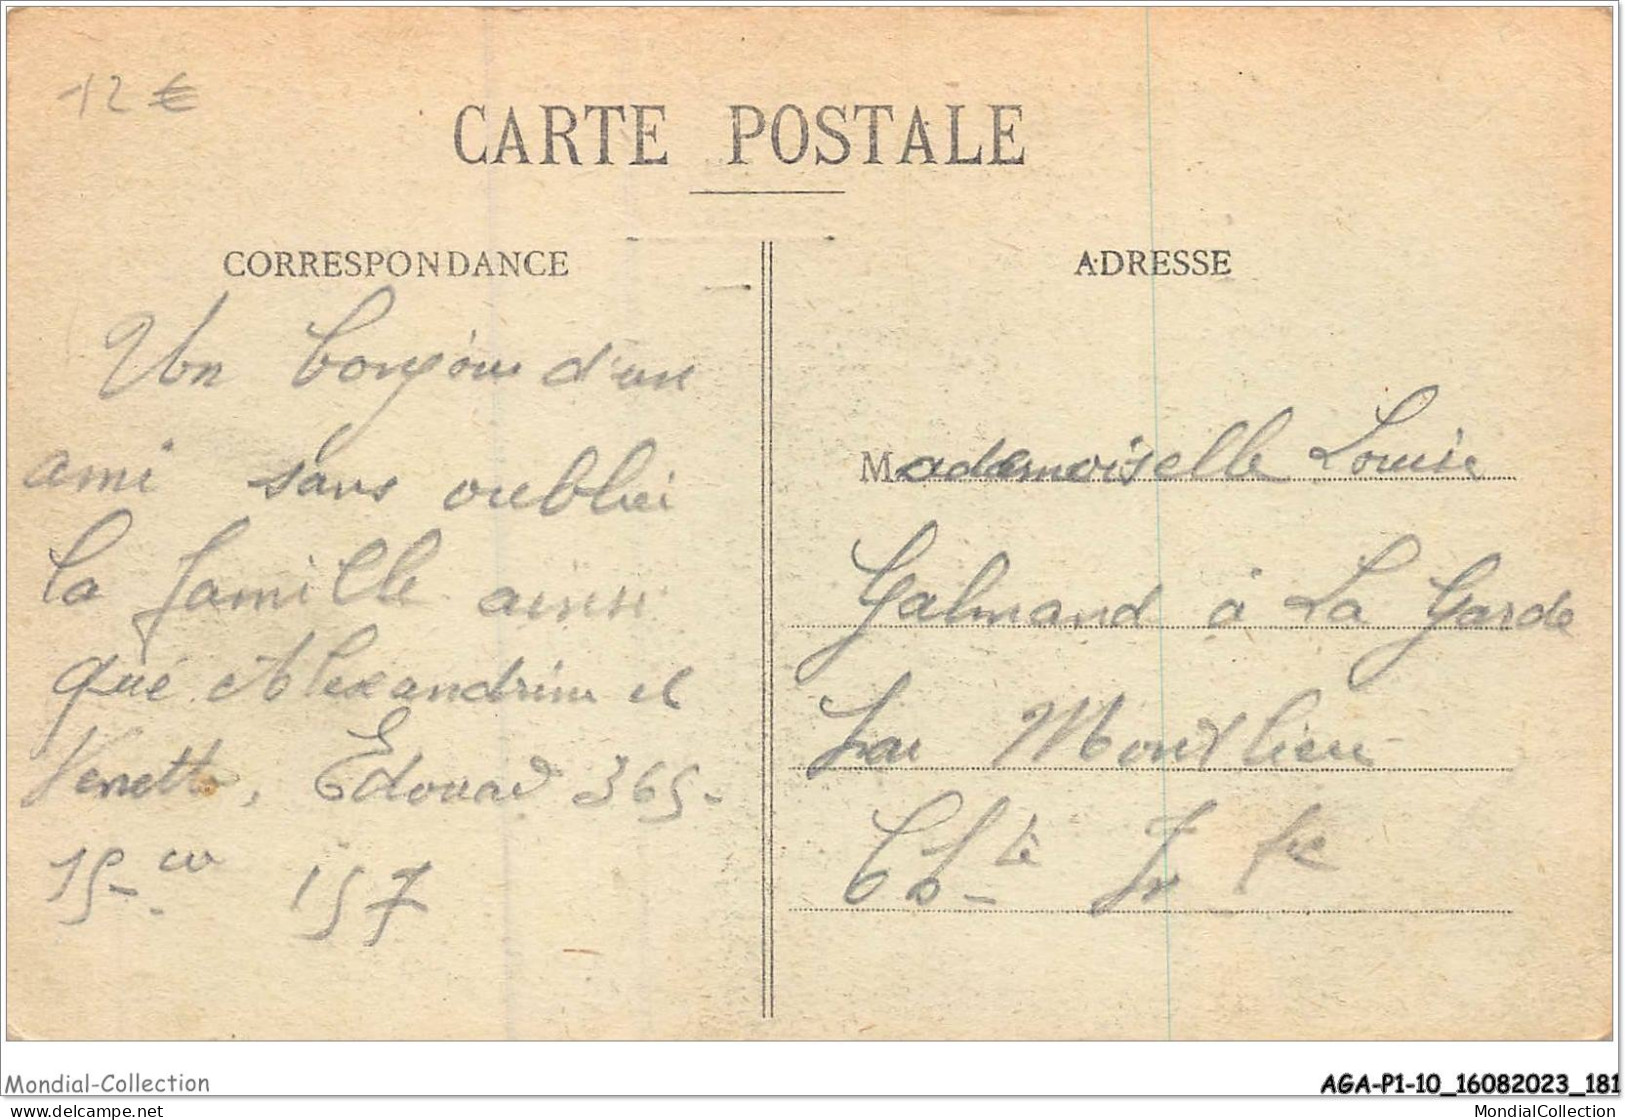 12 €
CARTE POSTALE
CORRESPONDANCE
Un bonjour d'un
ami sans oublier
la famille ainsi
que Alexandrine et
Edouard 365-
15- 157
ADRESSE
Mademoiselle Louise
Galmand à La Garde
par Montlieu
Ch.te Inf re
Mondial-Collection
AGA-P1-10_16082023_181
www.delcampe.net
MondialCollection